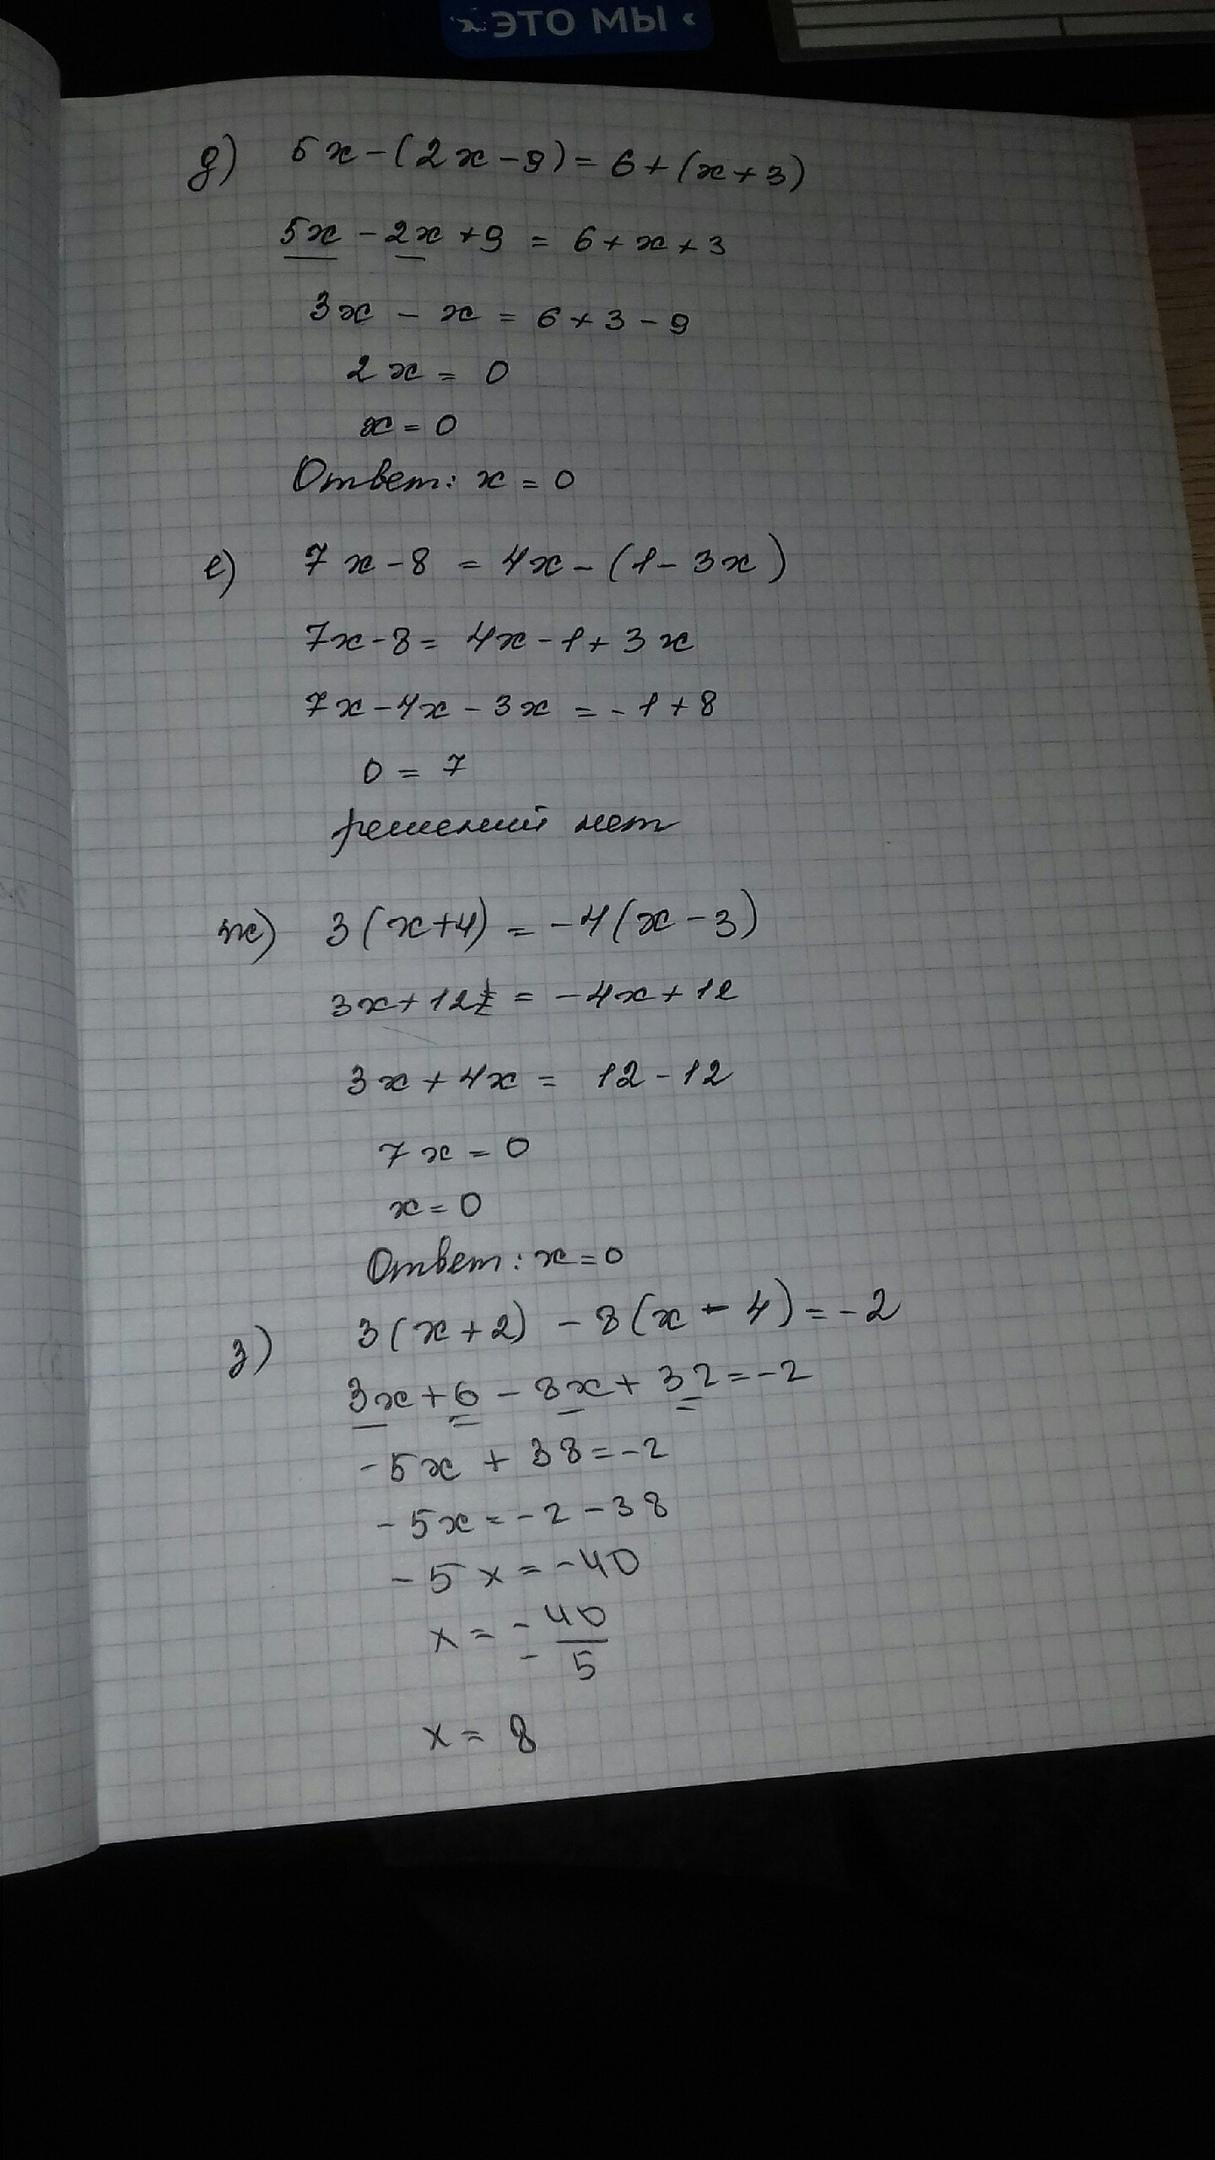 ЭТО МЫ
д) 5x-(2x-9)=6+(x+3)
5x-2x+9=6+x+3
3x-x=6+3-9
2x=0
x=0
Ответ: x=0
е) 7x-8=4x-(1-3x)
7x-8=4x-1+3x
7x-4x-3x=-1+8
0=7
решений нет
ж) 3(x+4)=-4(x-3)
3x+12=-4x+12
3x+4x=12-12
7x=0
x=0
Ответ: x=0
з) 3(x+2)-8(x-4)=-2
3x+6-8x+32=-2
-5x+38=-2
-5x=-2-38
-5x=-40
x=-40/-5
x=8